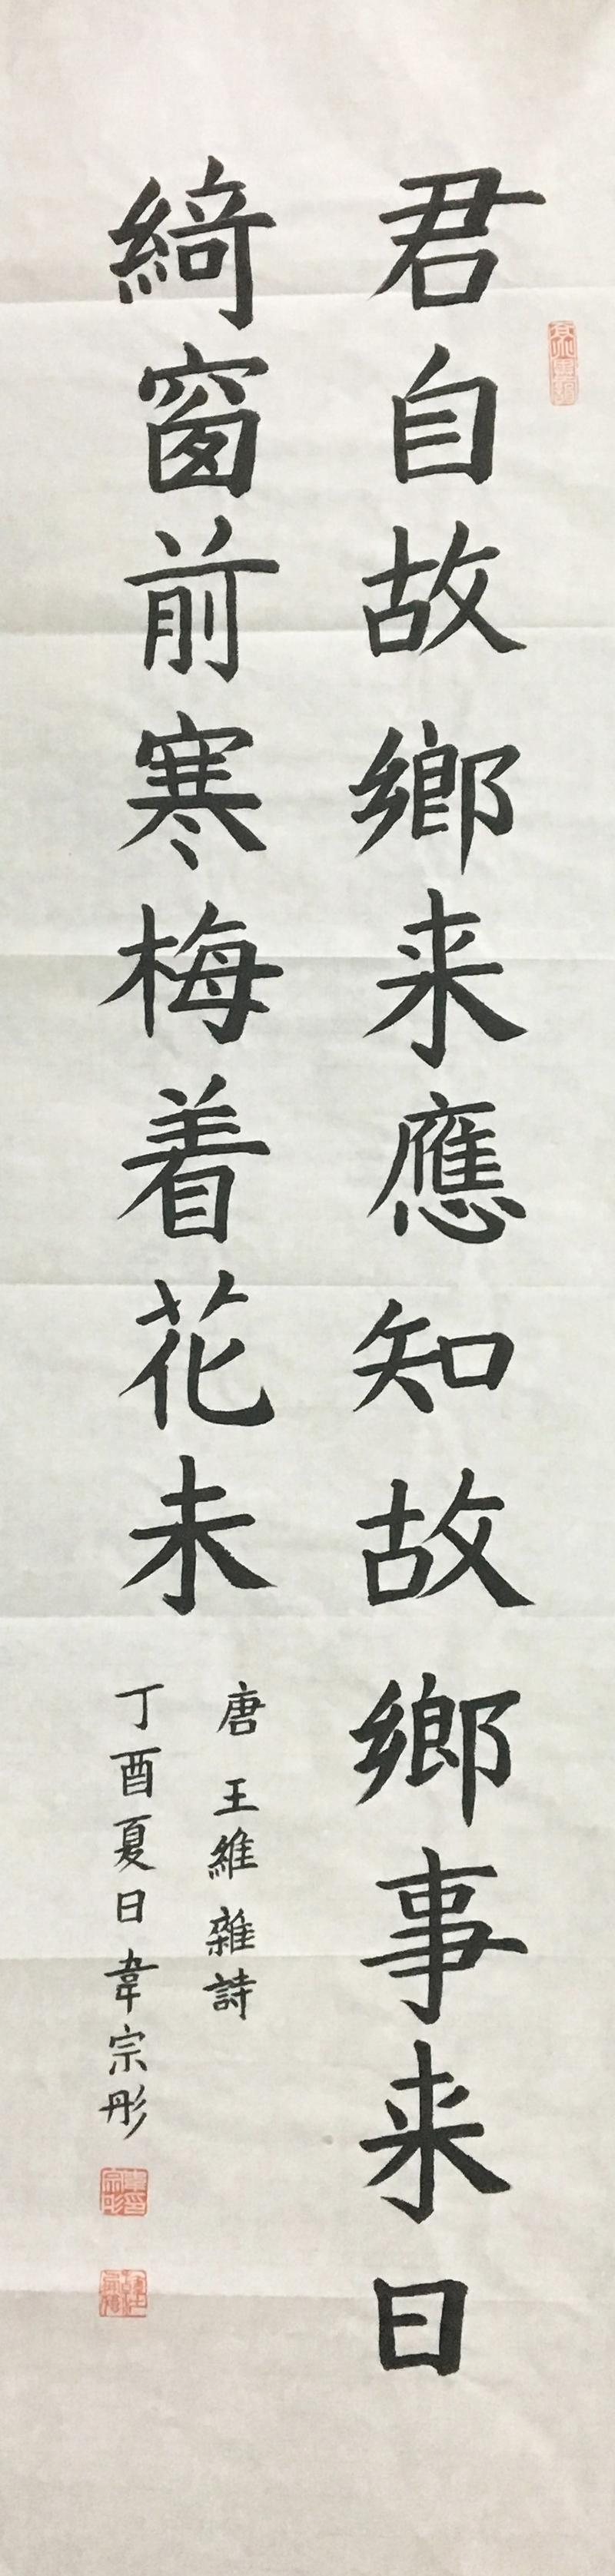 君自故鄉来應知故鄉事来日
綺窗前寒梅着花未
唐 王維 雜詩
丁酉夏日韋宗彤